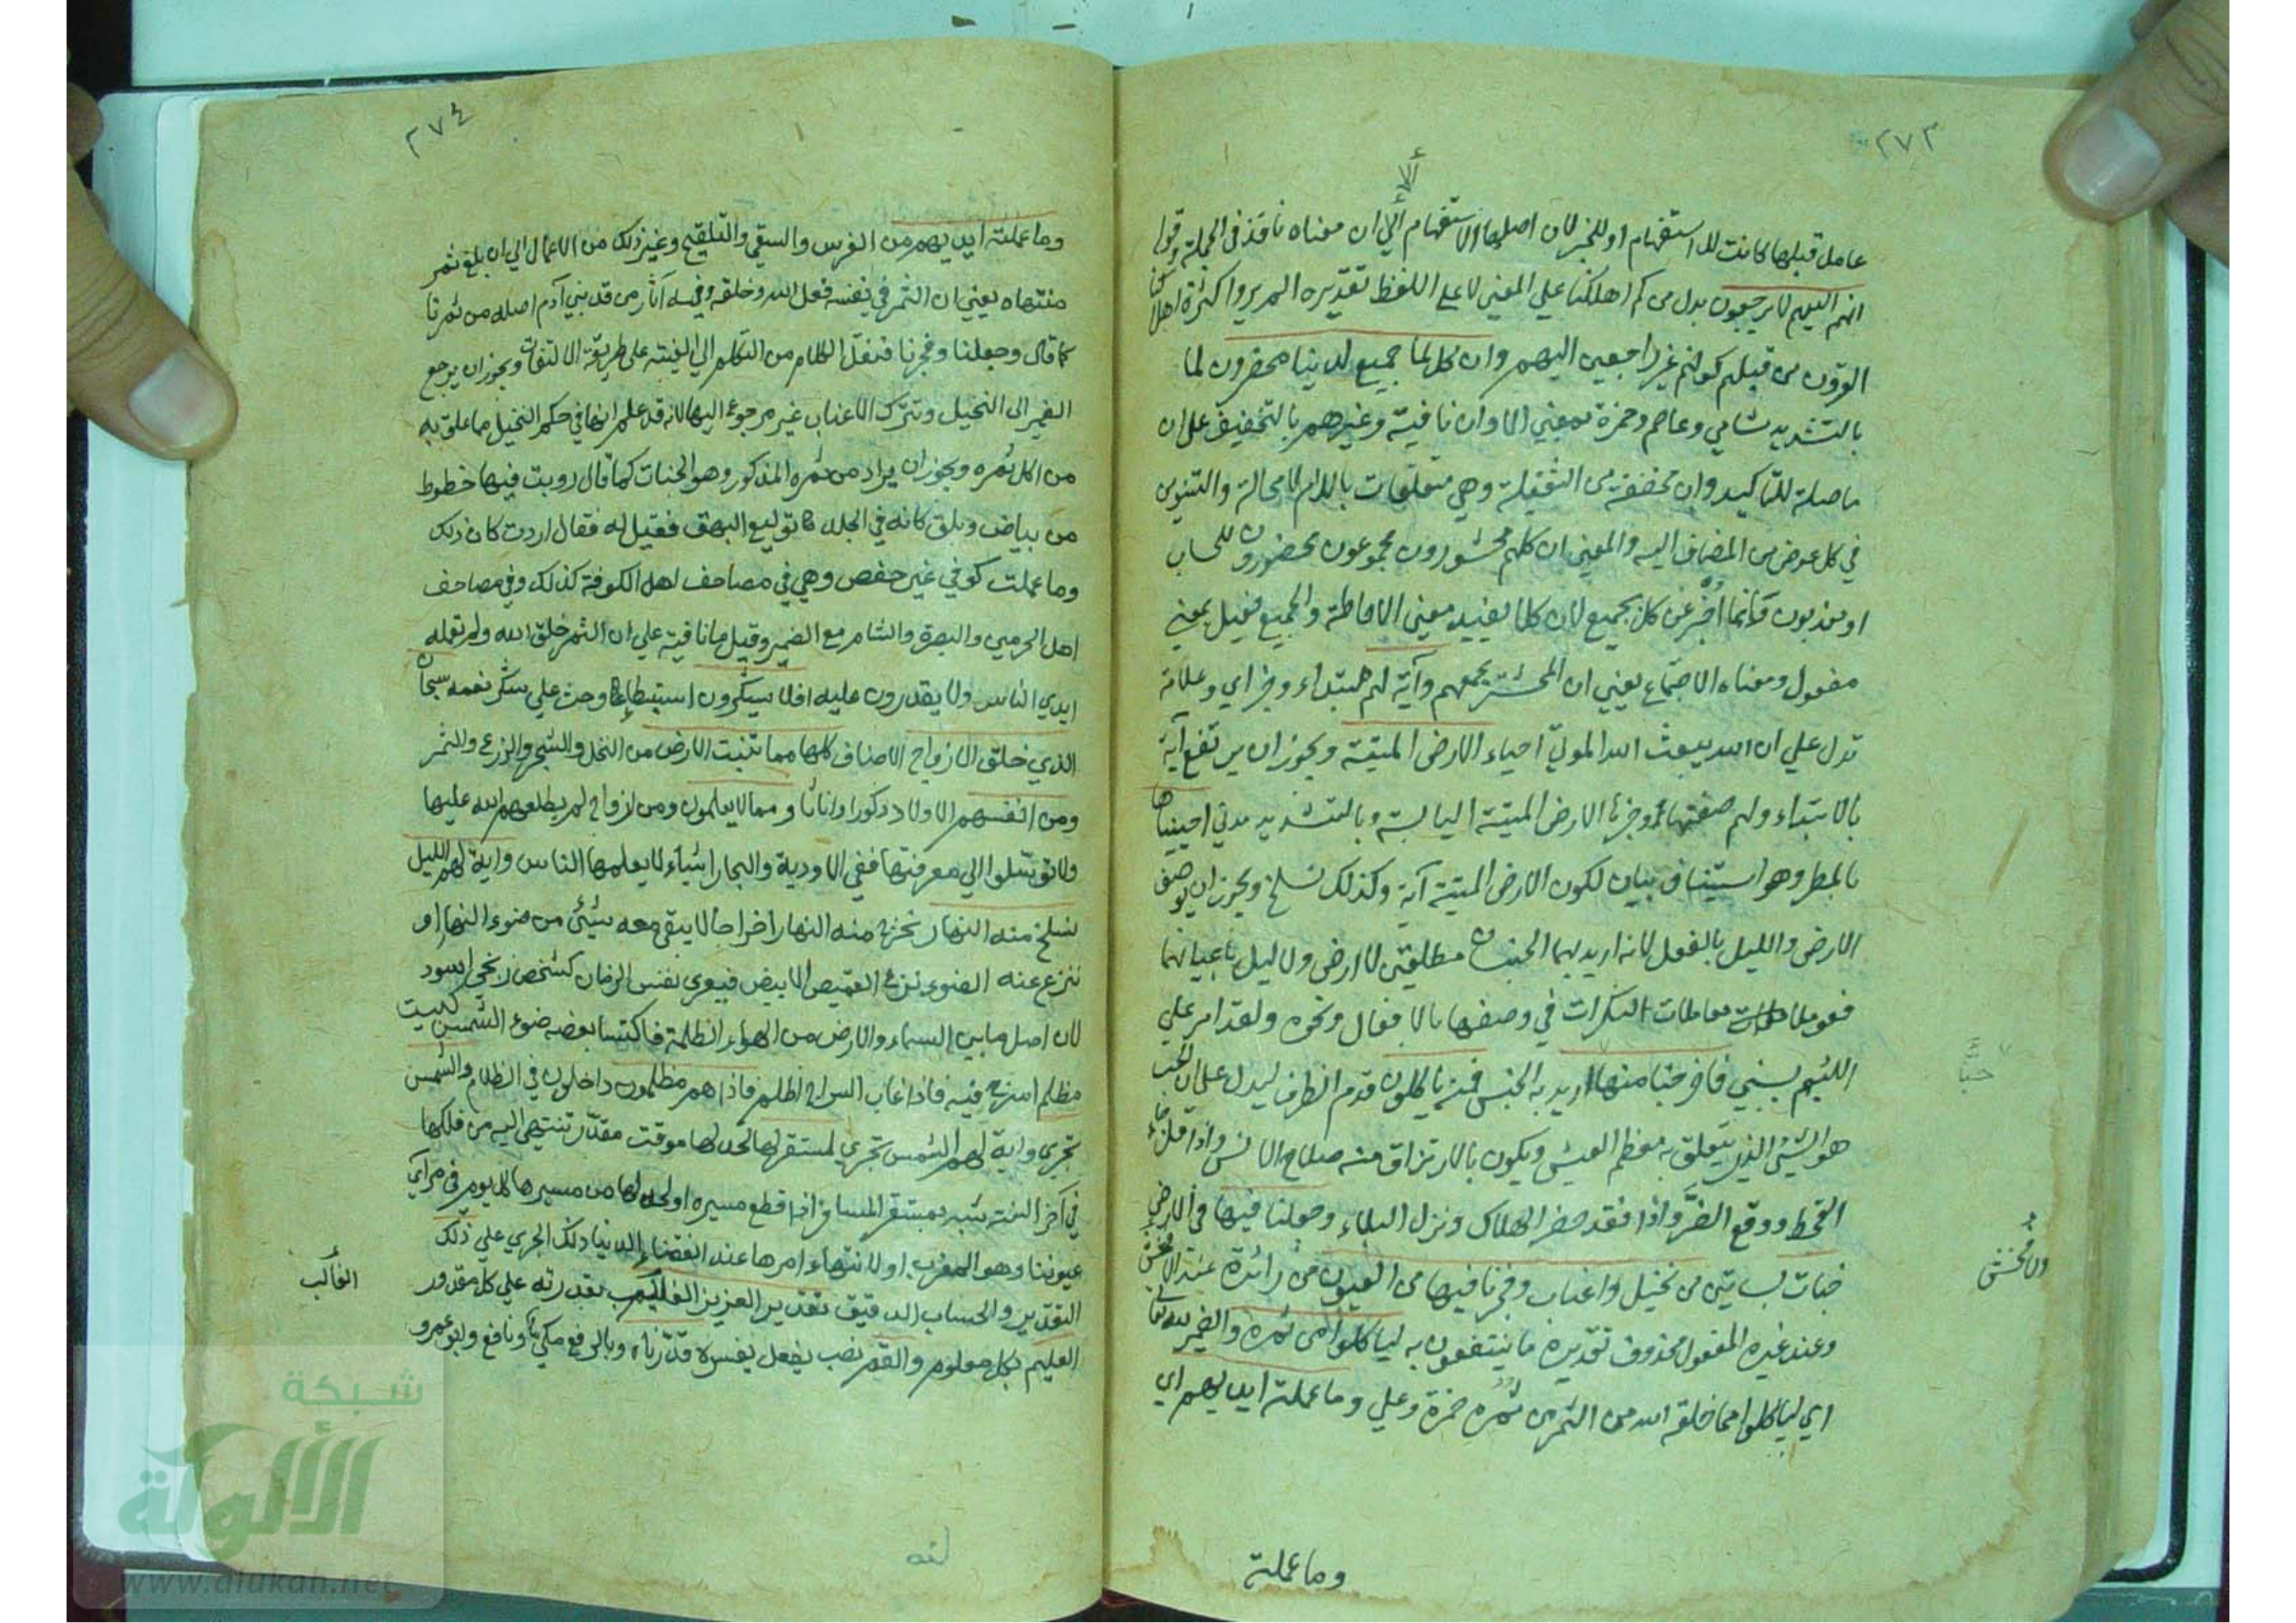 ٢٧٣
ألا
عامل قبلها كانت للاستفهام او للخبر لان اصلها الاستفهام الي ان معناه نافذ في الجملة وقوله
انهم اليهم لا يرجعون بدل من كم اهلكنا علي المعني لا علي اللفظ تقديره الم يروا كثرة اهلاكنا
القرون من قبلهم كونهم غير راجعين اليهم وان كل لما جميع لدينا محضرون لما
بالتشديد شامي وعاصم وحمزة بمعني الا وان نافية وغيرهم بالتخفيف علي ان
ما صلة للتاكيد وان مخففة من الثقيلة وهي متعلقات باللام لا محالة والتنوين
في كل عوض من المضاف اليه والمعني ان كلهم محشورون مجموعون محضرون للحساب
او معذبون وانما اخبر عن كل بجميع لان كلا يفيد معني الاحاطة والجميع فعيل بمعني
مفعول ومعناه الاجتماع يعني ان المحشر يجمعهم وآية لهم مبتداء وخبر اي وعلامة
تدل علي ان الله يبعث الله الموتي احياء الارض الميتة ويجوز ان يرتفع آية
بالابتداء ولهم صفتها وخبرها الارض الميتة اليابسة وبالتشديد مدني احييناها
بالمطر وهو استيناف بيان لكون الارض الميتة آية وكذلك نسلخ ويجوز ان يوصف
الارض والليل بالفعل لانه اريد بهما الجنسان مطلقين لا ارض ولا ليل باعيانهما
فعوملا معاملات النكرات في وصفها بالافعال ونحوه ولقد امر علي
اللئيم يسبني فاخرجنا منها اريد به الجنس فمنه ياكلون قدم الظرف ليدل علي ان الحب
هو الشئ الذي يتعلق به معظم العيش ويكون بالارتزاق منه صلاح الانس واذا قل جاء
القحط ووقع الضر واذا فقد حضر الهلاك ونزل البلاء وجعلنا فيها في الارض
جنات بساتين من نخيل واعناب وفجرنا فيها من العيون من زائدة عند الاخفش
وعند غيره المفعول محذوف تقديره ما ينتفعون به لياكلوا من ثمره والضمير لله تعالي
اي لياكلوا مما خلقه الله من الثمر من ثمره حمزة وعلي وما عملته ايديهم اي
حبا
وما عملته
٢٧٤
وما عملته ايديهم من الغرس والسقي والتلقيح وغير ذلك من الاعمال الي ان بلغ ثمر
منتهاه يعني ان الثمر في نفسه فعل الله وخلقه وفيه آثار من قد بني آدم اصله من ثمرنا
كما قال وجعلنا وفجرنا فنقل الكلام من التكلم الي الغيبة علي طريقة الالتفات ويجوز ان يرجع
الضمير الي النخيل وتترك الاعناب غير مرجوع اليها لانه قد علم انها في حكم النخيل مما علق به
من اكل ثمره ويجوز ان يراد من ثمره المذكور وهو الجنات كما قال رويت فيها خطوط
من بياض وبلق كانه في الجلد توليع البهق فقيل له فقال اردت كان ذلك
وما عملت كوفي غير حفص وهي في مصاحف اهل الكوفة كذلك وفي مصاحف
اهل الحرمين والبصرة والشام مع الضمير وقيل ما نافية علي ان الثمر خلق الله ولم تعمله
ايدي الناس ولا يقدرون عليه افلا يشكرون استبطاء وحث علي شكر نعمه سبحان
الذي خلق الازواج الاصناف كلها مما تنبت الارض من النخل والشجر والزرع والثمر
ومن انفسهم الاولاد ذكورا واناثا ومما لا يعلمون ومن ازواج لم يطلعهم الله عليها
ولا توسلوا الي معرفتها ففي الاودية والبحار اشياء لا يعلمها الناس واية لهم الليل
نسلخ منه النهار نخرج منه النهار اخراجا لا يبقي معه شئ من ضوء النهار او
ننزع عنه الضوء نزع القميص الابيض فيعري نفس الزمان كشخص زنجي اسود
لان اصل ما بين السماء والارض من الهواء الظلمة فاكتسا بعضه ضوء الشمس كبيت
مظلم اسرج فيه فاذا غاب السراج اظلم فاذا هم مظلمون داخلون في الظلام والشمس
تجري واية لهم الشمس تجري لمستقر لها لحد لها موقت مقدر تنتهي اليه من فلكها
في آخر السنة شبه بمستقر المسافر اذا قطع مسيره او لحد لها من مسيرها كل يوم في مراي
عيوننا وهو المغرب او لانتهاء امرها عند انقضاء الدنيا ذلك الجري علي ذلك
التقدير والحساب الدقيق تقدير العزيز بقدرته علي كل مقدور
العليم بكل معلوم والقمر نصب بفعل يفسره قدرناه وبالرفع مكي ونافع وابو عمرو
الغالب
شبكة
الألوكة
www.alukah.net